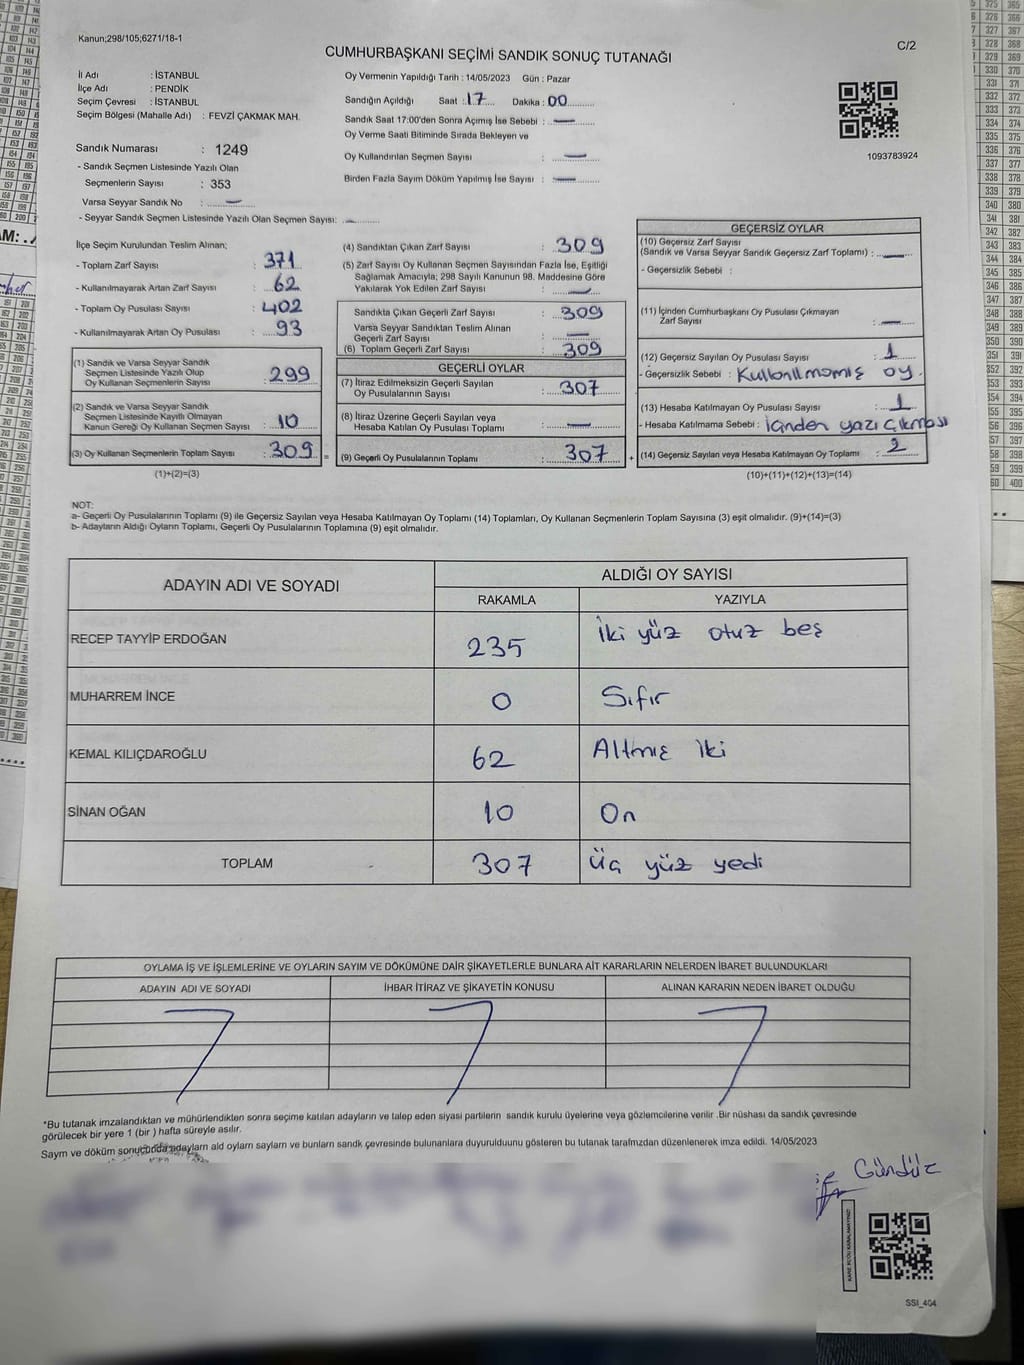 Kanun;298/105;6271/18-1
C/2
CUMHURBAŞKANI SEÇİMİ SANDIK SONUÇ TUTANAĞI
İl Adı : İSTANBUL
İlçe Adı : PENDİK
Seçim Çevresi : İSTANBUL
Seçim Bölgesi (Mahalle Adı) : FEVZİ ÇAKMAK MAH.
Sandık Numarası : 1249
- Sandık Seçmen Listesinde Yazılı Olan
Seçmenlerin Sayısı : 353
Varsa Seyyar Sandık No : —
- Seyyar Sandık Seçmen Listesinde Yazılı Olan Seçmen Sayısı: —
Oy Vermenin Yapıldığı Tarih : 14/05/2023 Gün : Pazar
Sandığın Açıldığı Saat : 17 Dakika : 00
Sandık Saat 17:00'den Sonra Açımış İse Sebebi : —
Oy Verme Saati Bitiminde Sırada Bekleyen ve
Oy Kullandırılan Seçmen Sayısı : —
Birden Fazla Sayım Döküm Yapılmış İse Sayısı : —
1093783924
İlçe Seçim Kurulundan Teslim Alınan;
- Toplam Zarf Sayısı : 371
- Kullanılmayarak Artan Zarf Sayısı : 62
- Toplam Oy Pusulası Sayısı : 402
- Kullanılmayarak Artan Oy Pusulası : 93
(1) Sandık ve Varsa Seyyar Sandık
Seçmen Listesinde Yazılı Olup
Oy Kullanan Seçmenlerin Sayısı : 299
(2) Sandık ve Varsa Seyyar Sandık
Seçmen Listesinde Kayıtlı Olmayan
Kanun Gereği Oy Kullanan Seçmen Sayısı : 10
(3) Oy Kullanan Seçmenlerin Toplam Sayısı : 309 =
(1)+(2)=(3)
(4) Sandıktan Çıkan Zarf Sayısı : 309
(5) Zarf Sayısı Oy Kullanan Seçmen Sayısından Fazla İse, Eşitliği
Sağlamak Amacıyla; 298 Sayılı Kanunun 98. Maddesine Göre
Yakılarak Yok Edilen Zarf Sayısı : —
Sandıkta Çıkan Geçerli Zarf Sayısı : 309
Varsa Seyyar Sandıktan Teslim Alınan
Geçerli Zarf Sayısı : —
(6) Toplam Geçerli Zarf Sayısı : 309
GEÇERLİ OYLAR
(7) İtiraz Edilmeksizin Geçerli Sayılan
Oy Pusulasının Sayısı : 307
(8) İtiraz Üzerine Geçerli Sayılan veya
Hesaba Katılan Oy Pusulası Toplamı : —
(9) Geçerli Oy Pusulalarının Toplamı : 307 +
GEÇERSİZ OYLAR
(10) Geçersiz Zarf Sayısı
(Sandık ve Varsa Seyyar Sandık Geçersiz Zarf Toplamı) : —
- Geçersizlik Sebebi :
(11) İçinden Cumhurbaşkanı Oy Pusulası Çıkmayan
Zarf Sayısı : —
(12) Geçersiz Sayılan Oy Pusulası Sayısı : 1
- Geçersizlik Sebebi : Kullanılmamış oy.
(13) Hesaba Katılmayan Oy Pusulası Sayısı : 1
- Hesaba Katılmama Sebebi : İçinden yazı çıkması
(14) Geçersiz Sayılan veya Hesaba Katılmayan Oy Toplamı : 2
(10)+(11)+(12)+(13)=(14)
NOT:
a- Geçerli Oy Pusulasının Toplamı (9) ile Geçersiz Sayılan veya Hesaba Katılmayan Oy Toplamı (14) Toplamları, Oy Kullanan Seçmenlerin Toplam Sayısına (3) eşit olmalıdır. (9)+(14)=(3)
b- Adayların Aldığı Oyların Toplamı, Geçerli Oy Pusulalarının Toplamına (9) eşit olmalıdır.
ADAYIN ADI VE SOYADI ALDIĞI OY SAYISI
RAKAMLA YAZIYLA
RECEP TAYYİP ERDOĞAN 235 İki yüz otuz beş
MUHARREM İNCE 0 Sıfır
KEMAL KILIÇDAROĞLU 62 Altmış iki
SİNAN OĞAN 10 On
TOPLAM 307 üç yüz yedi
OYLAMA İŞ VE İŞLEMLERİNE VE OYLARIN SAYIM VE DÖKÜMÜNE DAİR ŞİKAYETLERLE BUNLARA AİT KARARLARIN NELERDEN İBARET BULUNDUKLARI
ADAYIN ADI VE SOYADI İHBAR İTİRAZ VE ŞİKAYETİN KONUSU ALINAN KARARIN NEDEN İBARET OLDUĞU
*Bu tutanak imzalandıktan ve mühürlendikten sonra seçime katılan adayların ve talep eden siyasi partilerin sandık kurulu üyelerine veya gözlemcilerine verilir .Bir nüshası da sandık çevresinde
görülecek bir yere 1 (bir ) hafta süreyle asılır.
Sayım ve döküm sonucunda adayların ald oyların sayların ve bunların sandk çevresinde bulunanlara duyurulduunu gösteren bu tutanak tarafmzdan düzenlenerek imza edildi. 14/05/2023
Gündüz
SSI_404